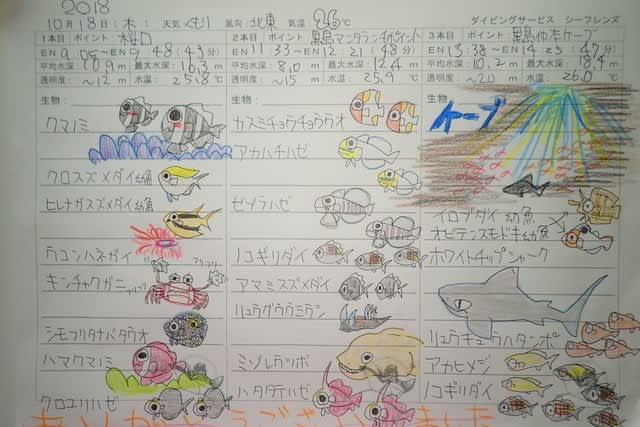 2018
10月18日(木) 天気 くもり 風向 北東 気温 26℃ ダイビングサービス シーフレンズ
1本目 ポイント 桜口
EN 9:05〜EX 9:48 (43分)
平均水深 10.9m 最大水深 16.3m
透明度 〜12m 水温 25.8℃
生物:
クマノミ
クロスズメダイ幼魚
ヒレナガスズメダイ幼魚
ウコンハネガイ
キンチャクガニ フリフリ フリフリ
シモフリタナバタウオ
ハマクマノミ
クロユリハゼ
2本目 ポイント 黒島マンタランチポイント
EN 11:33〜EX 12:21 (48分)
平均水深 8.0m 最大水深 12.4m
透明度 〜15m 水温 25.9℃
生物:
カスミチョウチョウウオ
アカハチハゼ
ゼブラハゼ
ノコギリダイ
アマミスズメダイ
リュウグウウミウシ
ミゾレウツボ
ハタタテハゼ
3本目 ポイント 黒島仲本ケーブ
EN 13:38〜EX 14:25 (47分)
平均水深 10.2m 最大水深 18.4m
透明度 〜20m 水温 26.0℃
生物
ケーブ
イロブダイ幼魚
オビテンスモドキ幼魚
ホワイトチップシャーク
リュウキュウハタンポ
アカヒメジ
ノコギリダイ
ありがとうございました